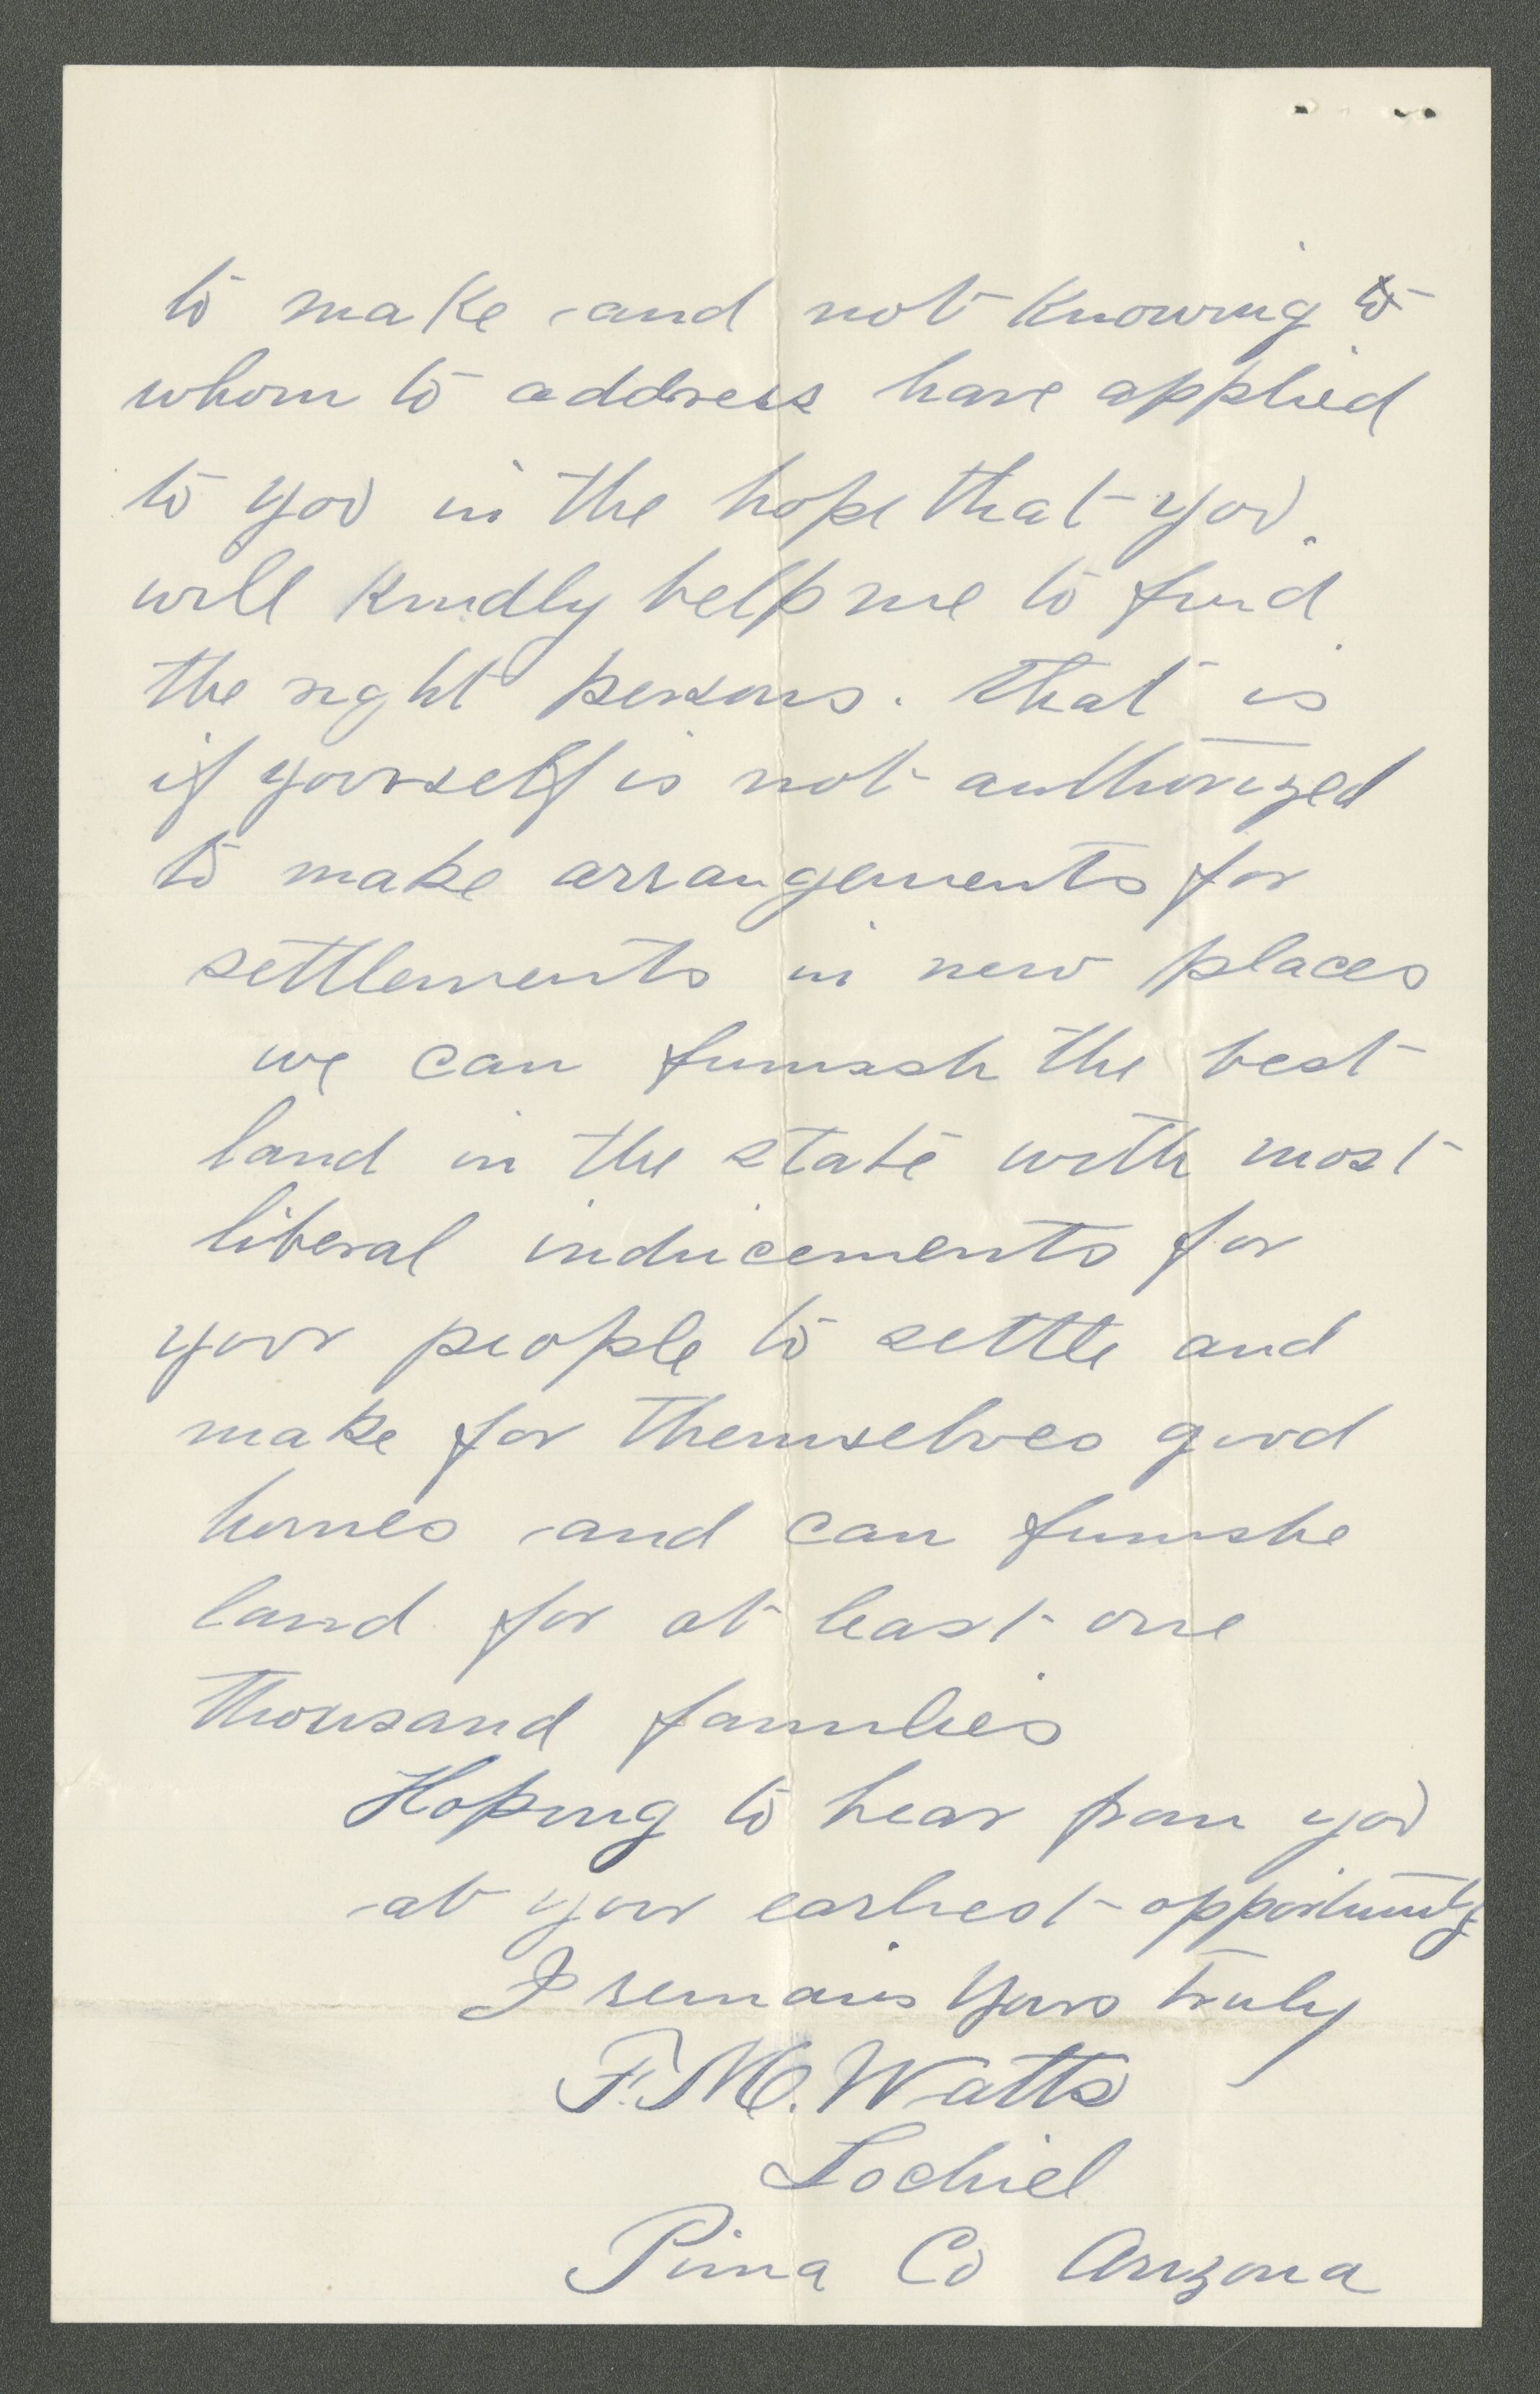 to make and not Knowing to
whom to address have applied
to you in the hope that you
will Kindly help me to find
the right persons. that is
if yourself is not authorized
to make arrangements for
settlements in new places
we can furnish the best
land in the state with most
liberal inducements for
your people to settle and
make for themselves good
homes and can furnishe
land for at least one
thousand families
Hoping to hear from you
at your earliest opportunity
I remain Yours truly
F. M. Watts
Lochiel
Pima Co Arizona